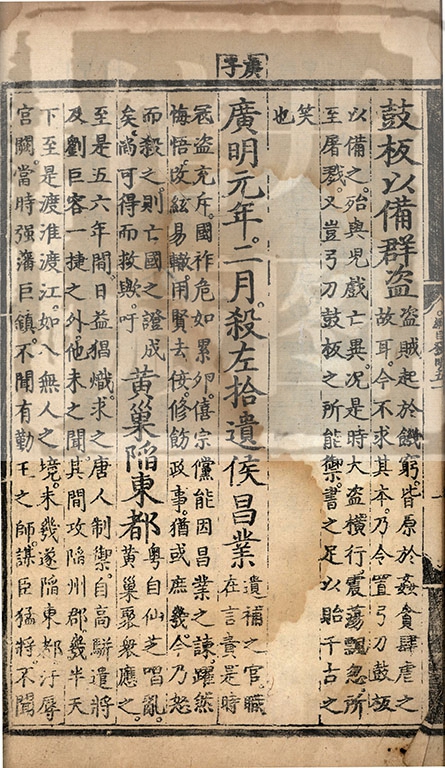 庚子
鼓板以備群盜
盜賊起於饑窮皆原於姦貪肆虐之
故耳今不求其本乃令置弓刀鼓板
以備之殆與兒戲亡異况是時大盜橫行震蕩飄忽所
至屠戮又豈弓刀鼓板之所能禦書之足以貽千古之
笑
也
廣明元年。二月。殺左拾遺侯昌業
遺補之官職
在言責是時
冦盜充斥。國祚危如累夘。僖宗儻能因昌業之諫。躍然
悔悟。攺絃易轍。用賢去佞。修飭政事。猶或庶幾。今乃怒
而殺之。則亡國之證成
矣。尚可得而救歟。吁
黄巢陷東都
粤自仙芝唱亂。
黄巢聚衆應之。
至是五六年間。日益猖熾。求之唐人制禦。自高駢遣將
及劉巨容一捷之外。他未之聞。其間攻陷州郡。幾半天
下。至是渡淮渡江。如入無人之境。未幾遂陷東都。汙辱
官闕。當時强藩巨鎮。不聞有勤王之師。謀臣猛將。不聞